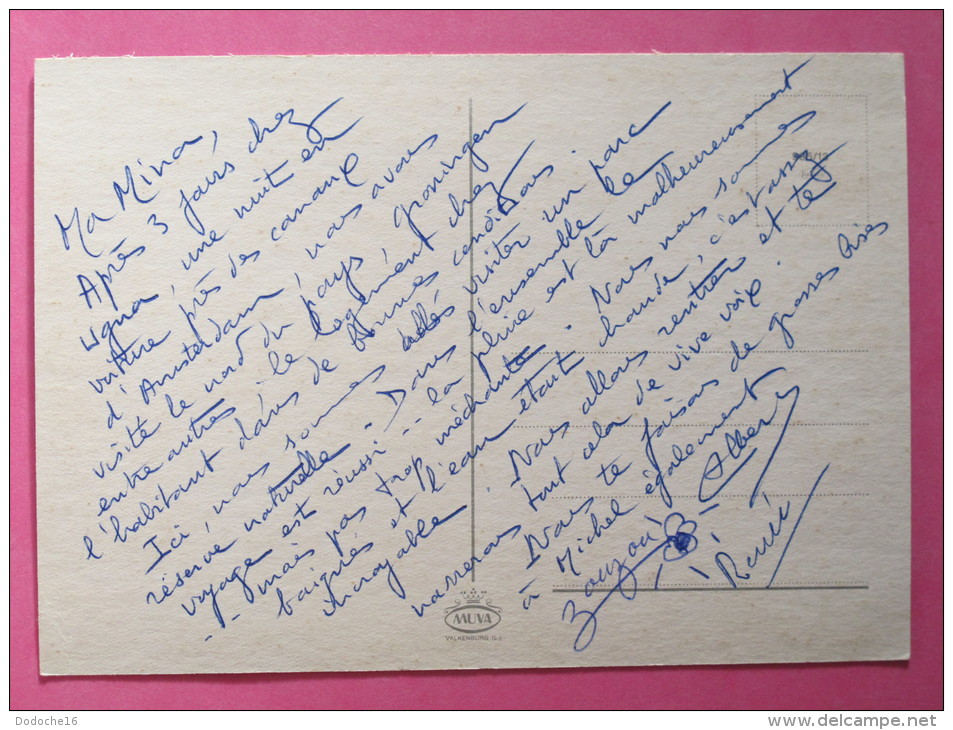 Ma Mina,
Après 3 jours chez
Ugna, une nuit en
voiture près des canaux
d'Amsterdam, nous avons
visité le nord du pays, Groningen
entre autres, le logement chez
l'habitant dans de bonnes conditions.
Ici, nous sommes allés visiter un parc
réserve naturelle. Dans l'ensemble le
voyage est réussi -- la pluie est là malheureusement
-- mais pas trop méchante. Nous nous sommes
baignés et l'eau étant chaude, c'est assez
incroyable. Nous allons rentrer et te
narrerons tout cela de vive voix.
Nous te faisons de grosses bises
à Michel également
Albert
zouzou
Renée
MUVA
VALKENBURG (L.)
Dodoche16
www.delcampe.net